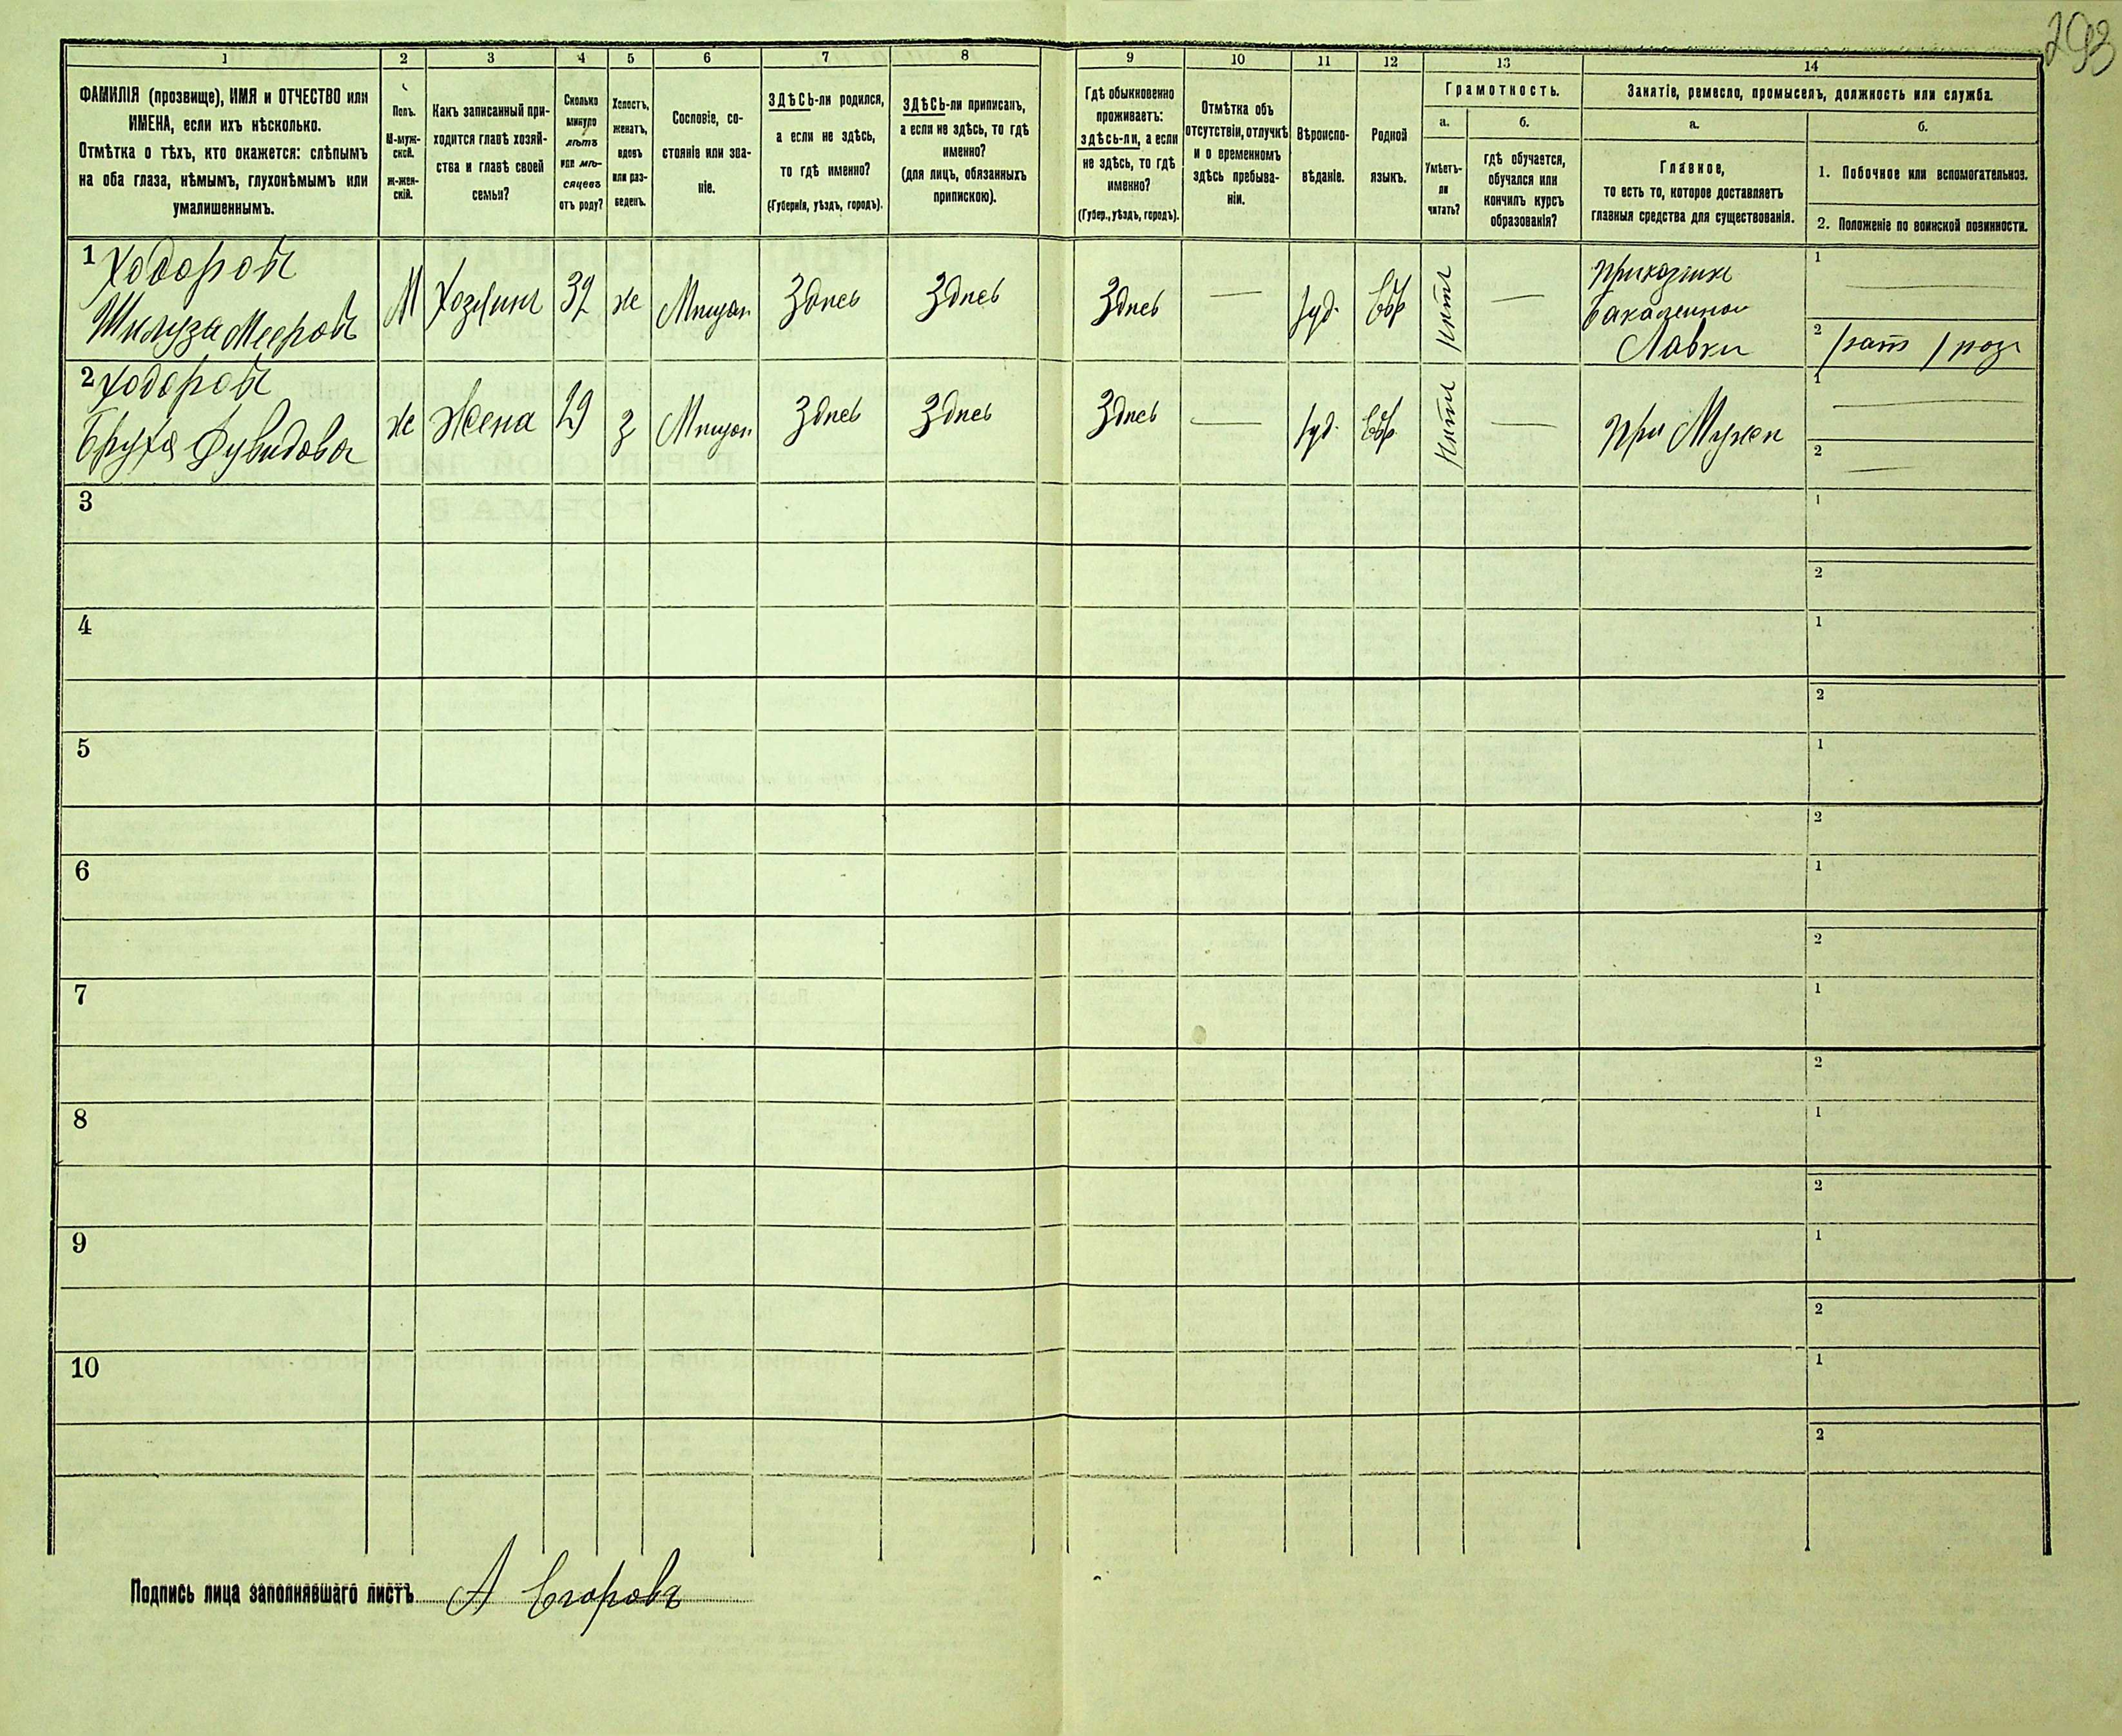 293
1 2 3 4 5 6 7 8 9 10 11 12 13 14
ФАМИЛІЯ (прозвище), ИМЯ и ОТЧЕСТВО или
ИМЕНА, если ихъ нѣсколько.
Отмѣтка о тѣхъ, кто окажется: слѣпымъ
на оба глаза, нѣмымъ, глухонѣмымъ или
умалишеннымъ.
Полъ.
М-муж-
ской.
Ж-жен-
скій.
Какъ записанный при-
ходится главѣ хозяй-
ства и главѣ своей
семьи?
Сколько
минуло
лѣтъ
или мѣ-
сяцевъ
отъ роду?
Холостъ,
женатъ,
вдовъ
или раз-
веденъ.
Сословіе, со-
стояніе или зва-
ніе.
ЗДѢСЬ-ли родился,
а если не здѣсь,
то гдѣ именно?
(Губернія, уѣздъ, городъ).
ЗДѢСЬ-ли приписанъ,
а если не здѣсь, то гдѣ
именно?
(для лицъ, обязанныхъ
припискою).
Гдѣ обыкновенно
проживаетъ:
здѣсь-ли, а если
не здѣсь, то гдѣ
именно?
(Губер., уѣздъ, городъ).
Отмѣтка объ
отсутствіи, отлучкѣ
и о временномъ
здѣсь пребыва-
ніи.
Вѣроиспо-
вѣданіе.
Родной
языкъ.
Грамотность.
а. б.
Умѣетъ-
ли
читать?
гдѣ обучается,
обучался или
кончилъ курсъ
образованія?
Занятіе, ремесло, промыселъ, должность или служба.
а. б.
Главное,
то есть то, которое доставляетъ
главныя средства для существованія.
1. Побочное или вспомогательное.
2. Положеніе по воинской повинности.
1 Ходоровъ
Мееровъ
М Хозяинъ 32 же Мѣщан Здѣсь Здѣсь Здѣсь — Іуд. Евр нѣтъ —
приказчикъ
бакалейной
Лавки
1 —
2
2 Ходоровъ
Бруха Дувидова
же Жена 29 З Мѣщан Здѣсь Здѣсь Здѣсь — Іуд. Евр нѣтъ — при Мужѣ
1 —
2 —
3
1
2
4
1
2
5
1
2
6
1
2
7
1
2
8
1
2
9
1
2
10
1
2
Подпись лица заполнявшаго листъ А Егоровъ